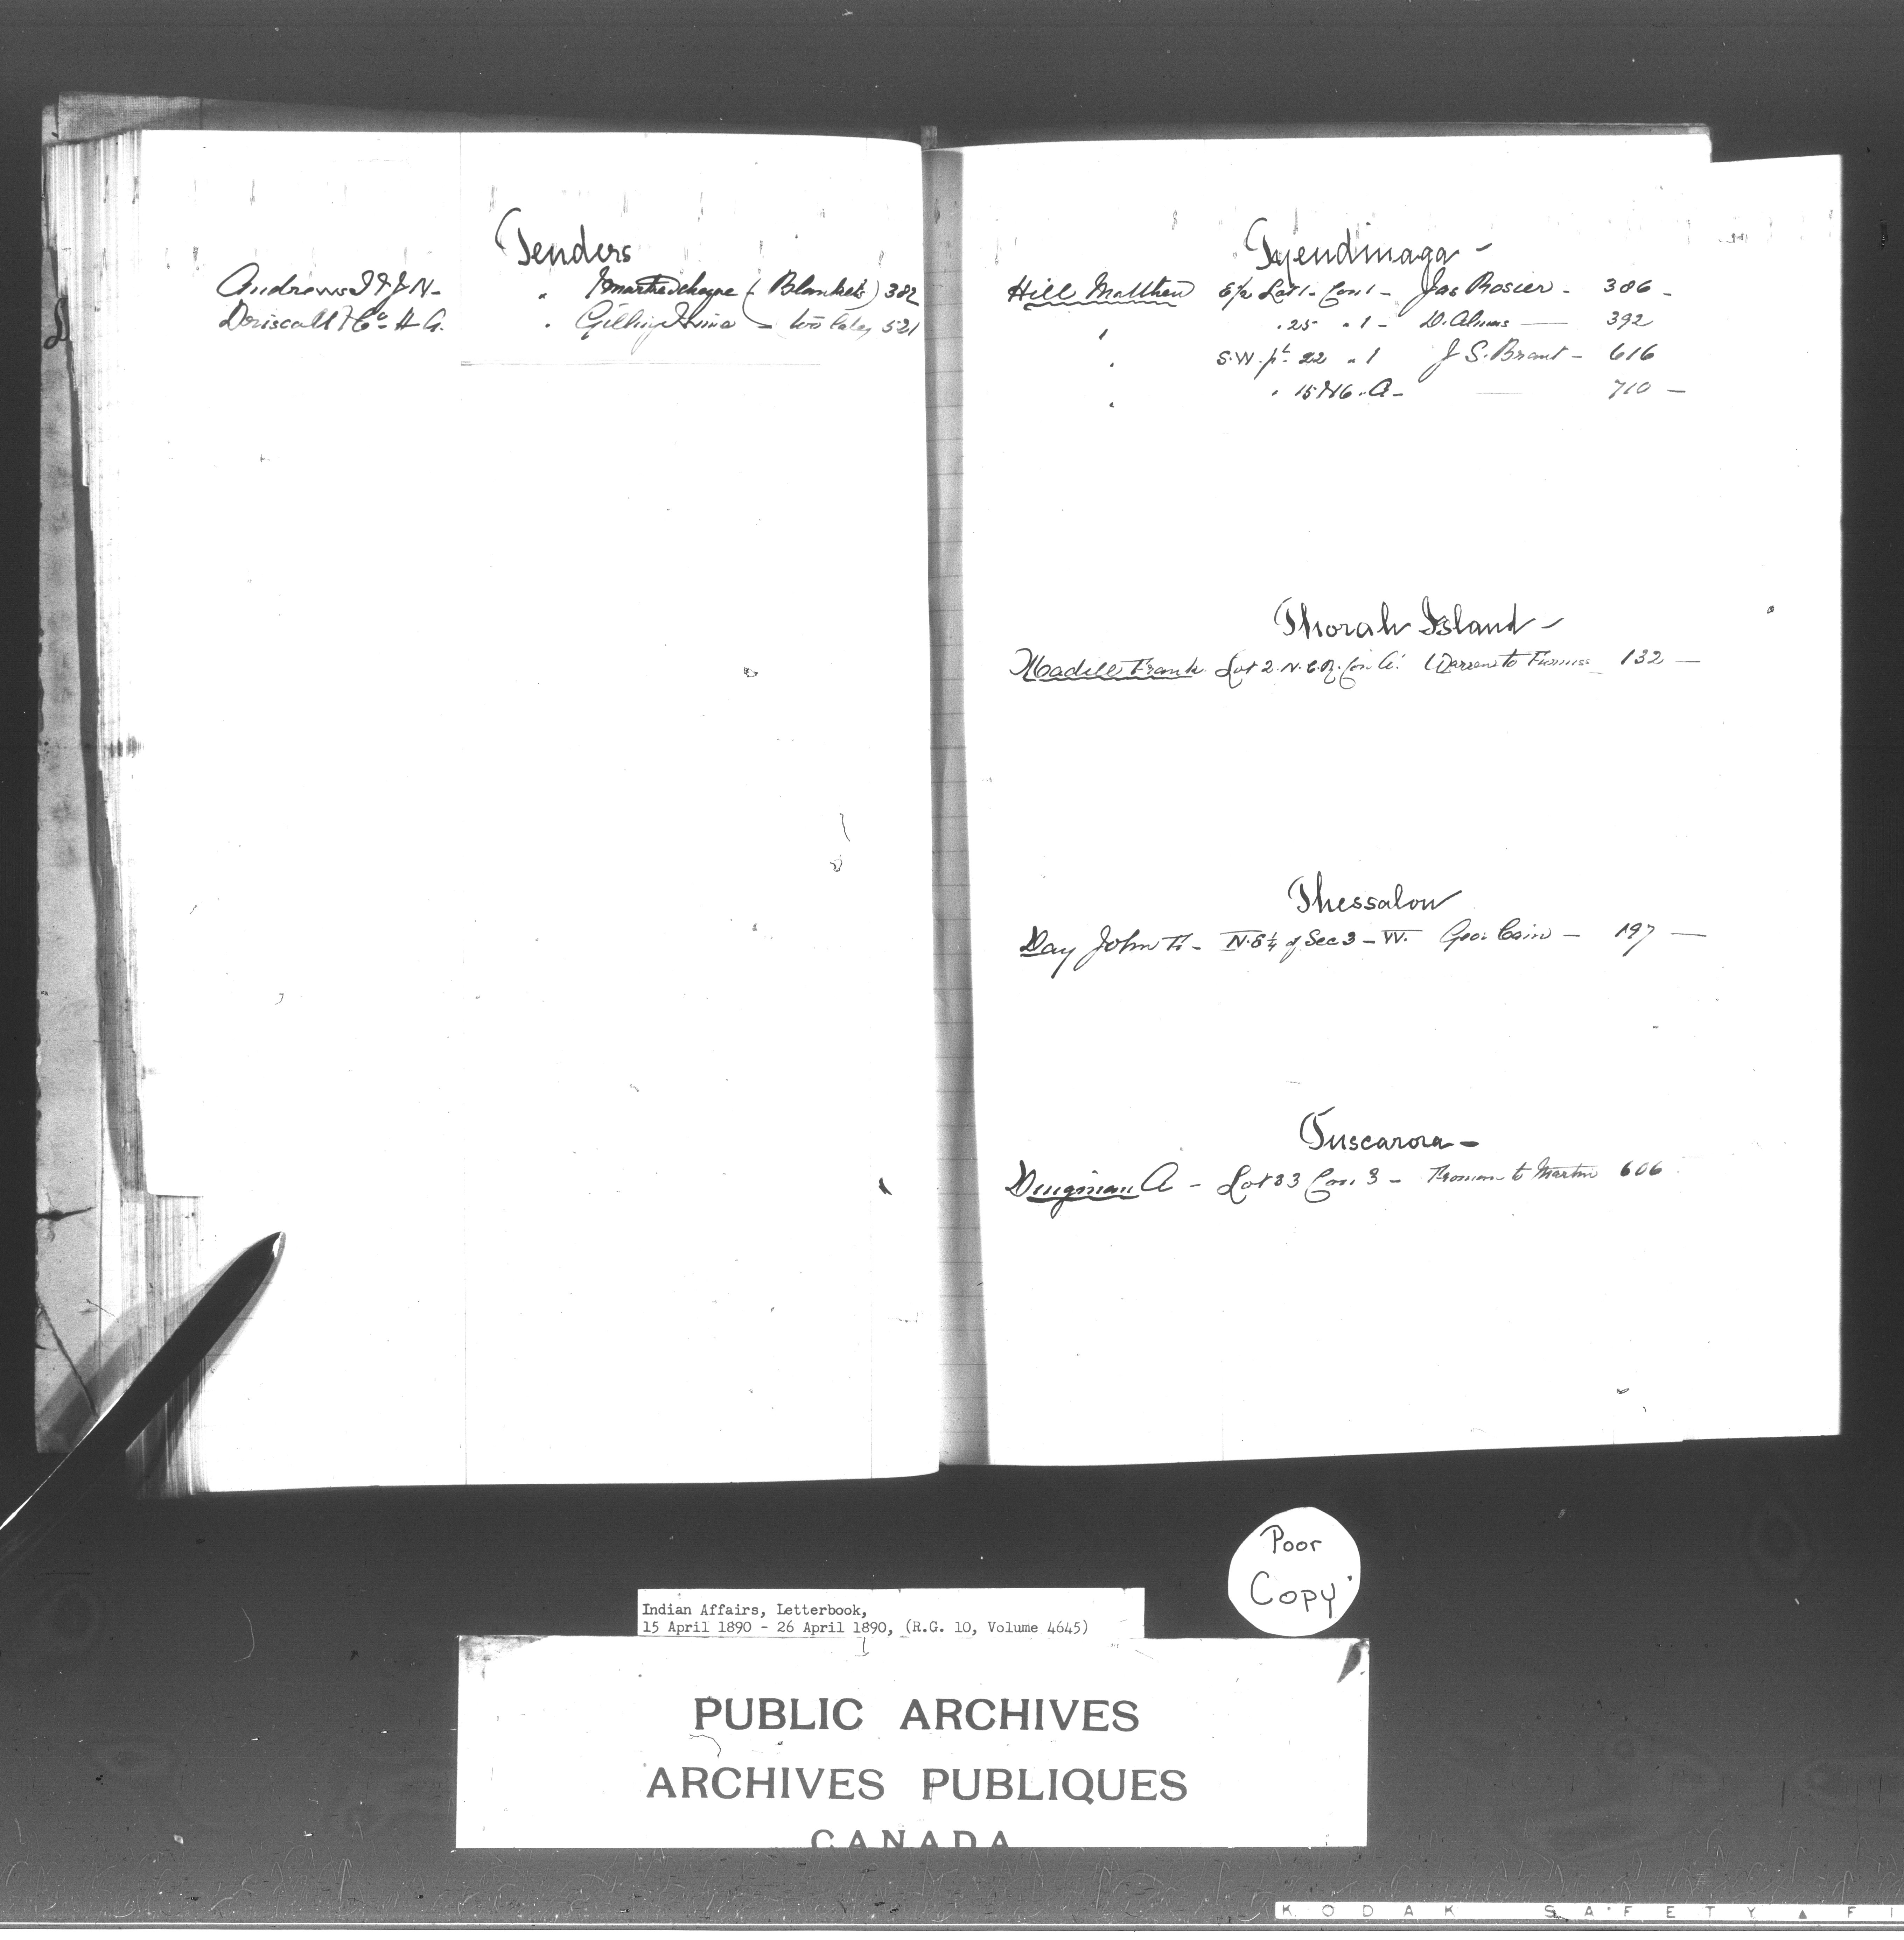 Tenders
Andrews & J N - " (Blankets) 382
Driscoll & Co H A. " Gilling twine - too late, 521
Tyendinaga -
Hill Matthew E½ Lot 1 - Con 1 - Jas Rosier - 386 -
" " 25 " 1 - D. — 392
" S.W. pt 22 " 1 J S. Brant - 616
" " 15 & 16 " A - — 710 —
Thorah Island -
Madill Frank Lot 2. N. Con A. Warren to Furniss 132 —
Thessalon
Day John H - N.E ¼ of Sec 3 - W. Geo: Cain - 197 —
Tuscarora -
Dingman A - Lot 33 Con 3 - Froman to Martin 606
Poor
Copy
Indian Affairs, Letterbook,
15 April 1890 - 26 April 1890, (R.G. 10, Volume 4645)
PUBLIC ARCHIVES
ARCHIVES PUBLIQUES
CANADA
KODAK SAFETY ▲ FI